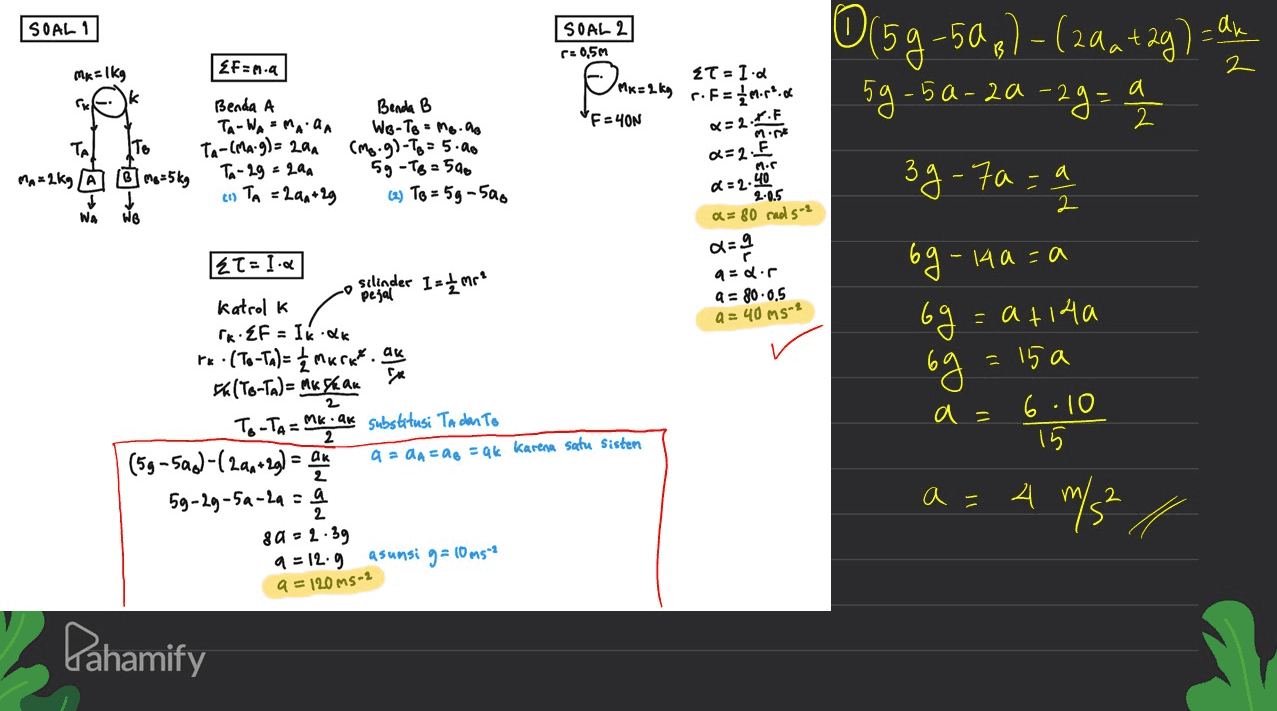 SOAL 1
mK=1kg
rK
K
TA
TB
MA=2kg
A
B
MB=5kg
WA
WB
ΣF=m.a
Benda A
TA-WA = MA.aA
TA-(MA.g)= 2aA
TA-2g = 2aA
(1) TA = 2aA+2g
Benda B
WB-TB = MB.aB
(MB.g)-TB = 5.aB
5g-TB = 5aB
(2) TB = 5g-5aB
Στ = I.α
silinder pejal I = 1/2 mr²
Katrol K
rK.ΣF = IK.αK
rK.(TB-TA) = 1/2 mK rK². aK/rK
rK(TB-TA) = MK rK aK/2
TB-TA = MK.aK/2 substitusi TA dan TB
(5g-5aB)-(2aA+2g) = aK/2 a = aA = aB = aK karena satu sistem
5g-2g-5a-2a = a/2
8a = 2.3g
a = 12.g asumsi g = 10 ms-²
a = 120 ms-²
SOAL 2
r=0,5m
MK=2kg
F=40N
Στ = I.α
r.F = 1/2 m.r².α
α = 2.r.F/m.r²
α = 2.F/m.r
α = 2.40/2.0,5
α = 80 rad s-²
α = a/r
a = α.r
a = 80.0,5
a = 40 ms-²
① (5g-5aB)-(2aA+2g) = aK/2
5g-5a-2a-2g = a/2
3g-7a = a/2
6g-14a = a
6g = a+14a
6g = 15a
a = 6.10/15
a = 4 m/s²
Pahamify